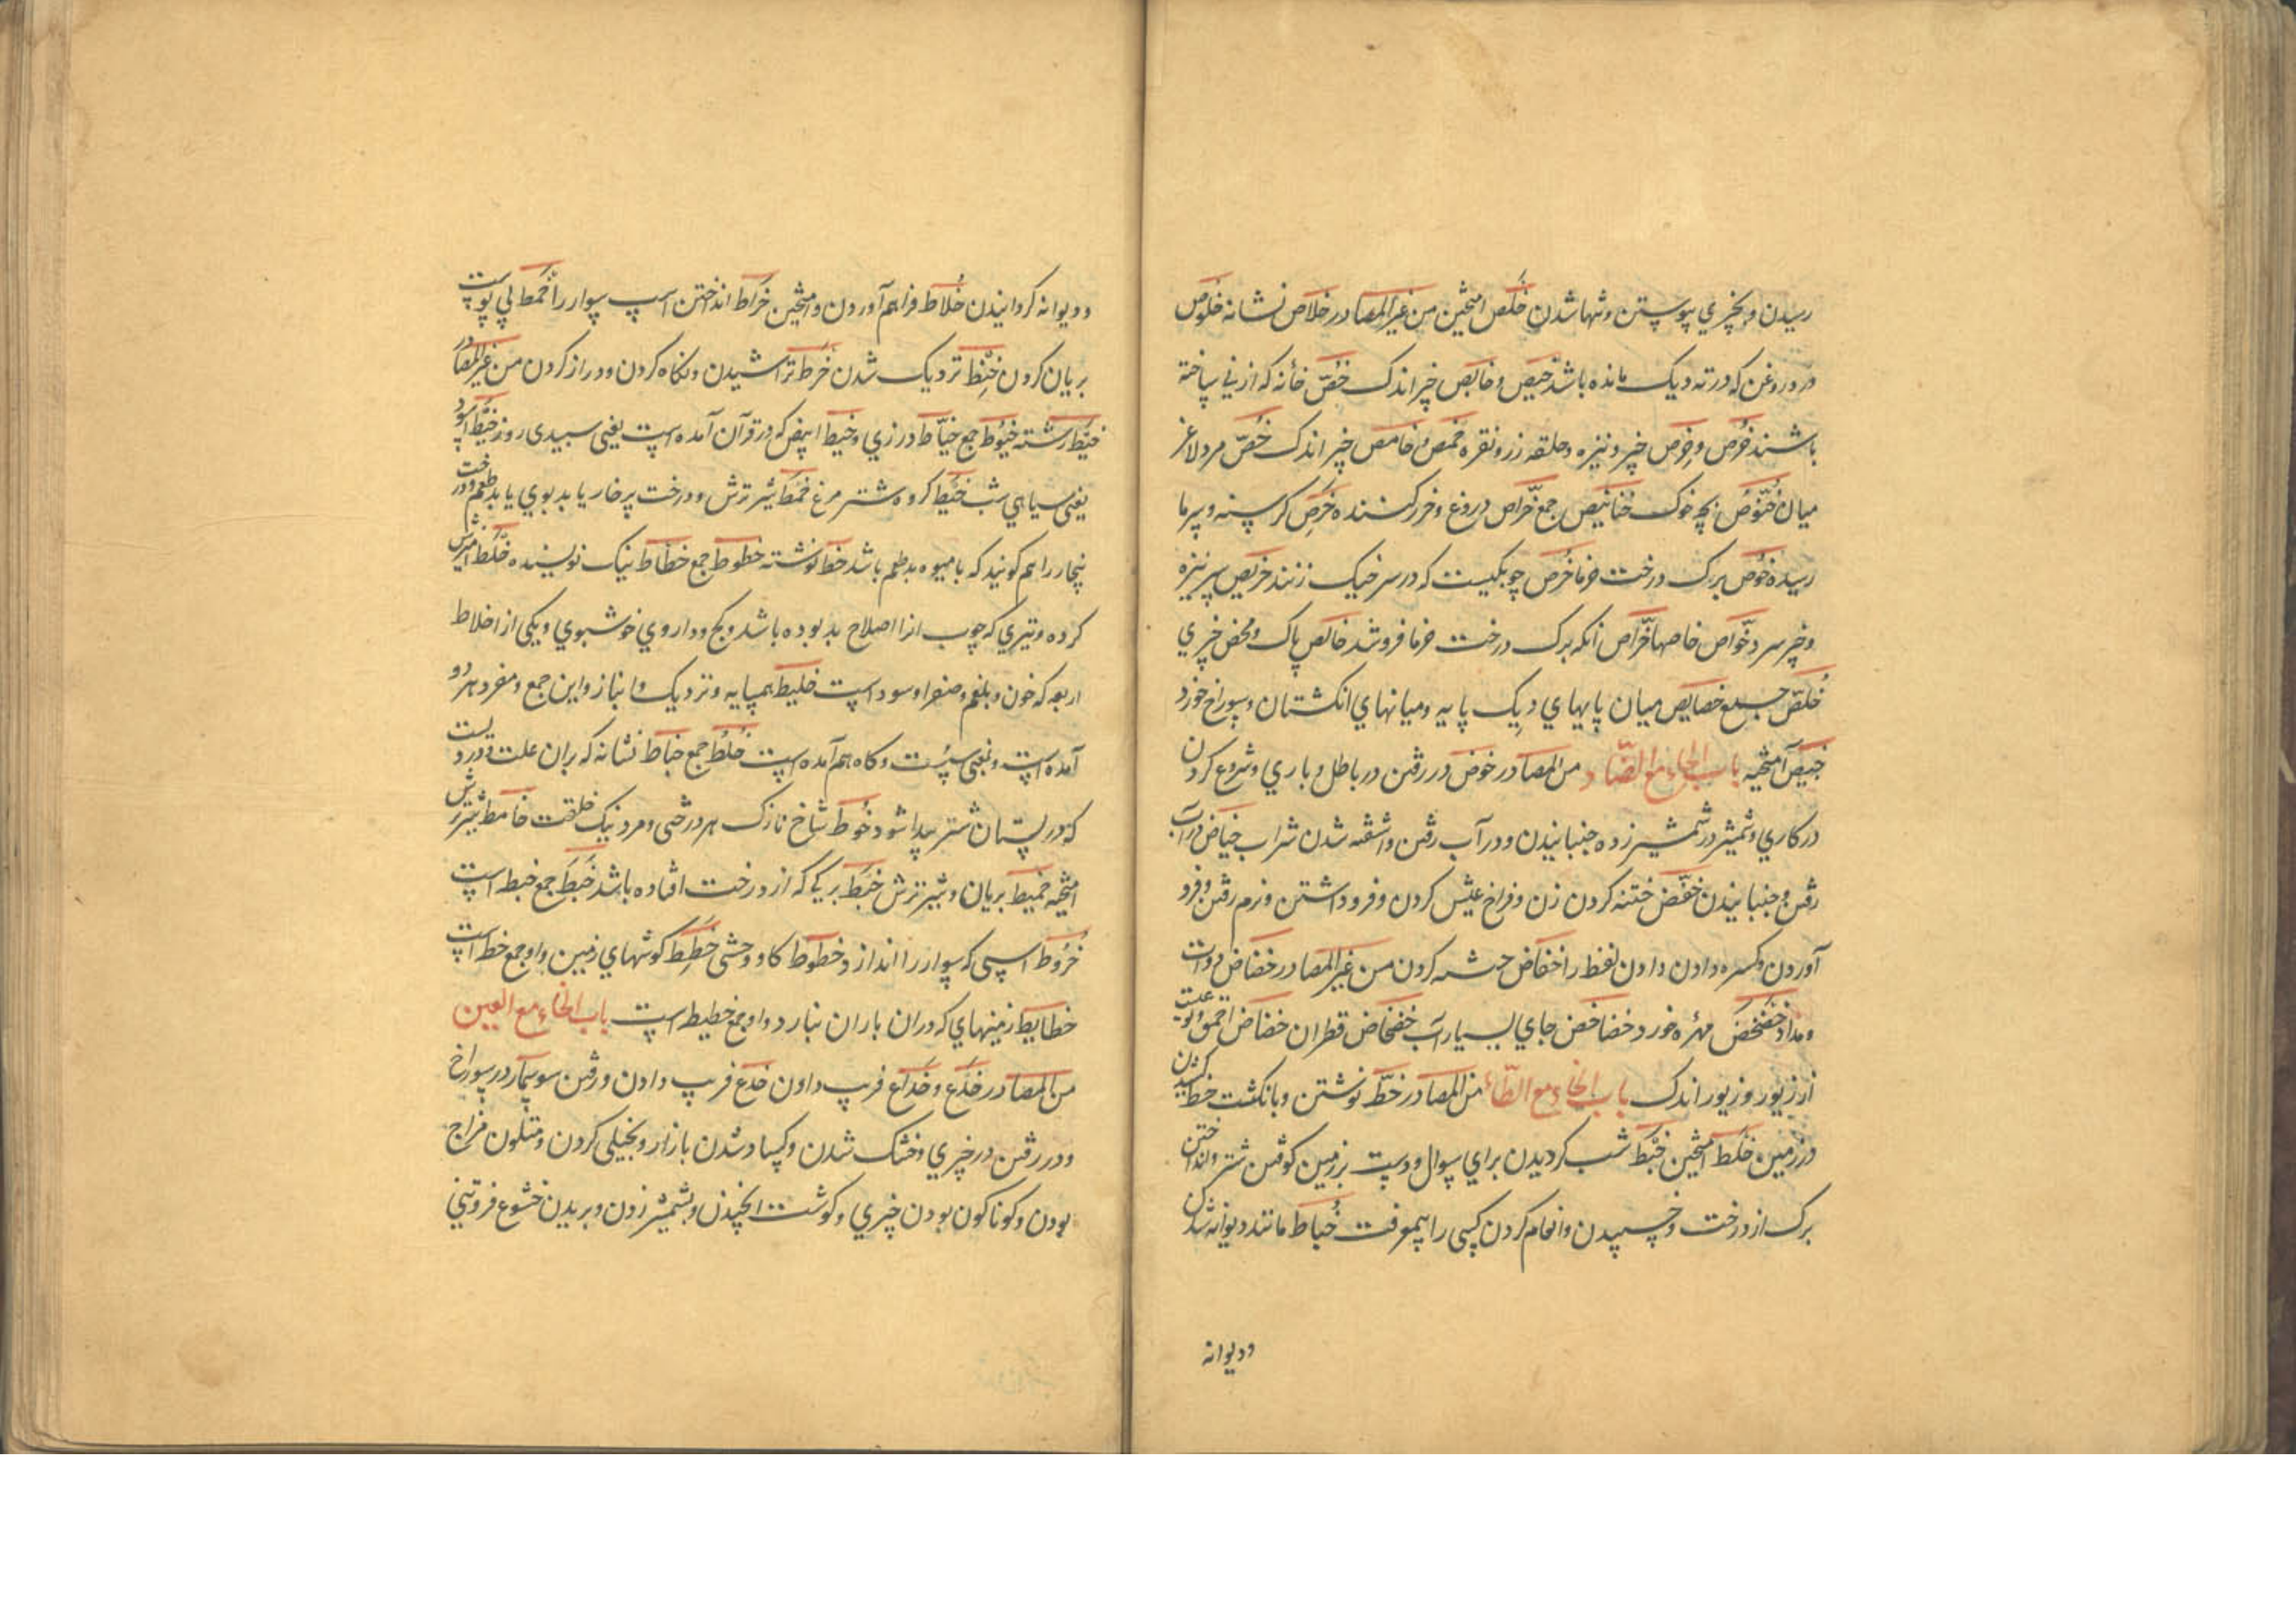 رسیدن و بچیزی پیوستن و تنها شدن خَلص آمیختن من غیر المصادر خلاص نشانه خلوص
درد روغن که در ته دیک مانده باشد خبیص و خابص چیز اندک خُصّ خانه که از نی ساخته
باشند خُرص و خِرص چیز و نیزه و حلقه زر و نقره خمص و خامص چیز اندک خُصّ مرد لاغر
میان خِنّوص بچه خوک خنانیص جمع خرّاص دروغ و خرر کننده خَرِص کرسنه و سرما
رسیده خُوص برک درخت خرما خُرص چوبکیست که در سر خیک زنند خریص سر نیزه
و چیز سرد خواص خاصها خوّاص آنکه برک درخت خرما فروشد خالص پاک و محض چیزی
خُلّص جمع خصایص میان پایهای دیک پایه و میانهای انکشتان و سوراخ خورد
خبیص آمیخته باب الخاء مع الضّاد من المصادر خوض در رفتن در باطل و باری و شروع کردن
در کاری و شمشیر در شمشیر زده جنبانیدن و در آب رفتن و آشفته شدن شراب خیاض در آب
رفتن و جنبانیدن خفض ختنه کردن زن و فراخ عیش کردن و فرو داشتن و نرم رفتن و فرو
آوردن و کسره دادن دادن لفظ را خفاض ختنه کردن من غیر المصادر خضاض دوات
و مداد خضخض مهره خورد خضاخض جای بسیار آب خضخاض قطران خضاض احمق و
از زیور و زیور اندک باب الخاء مع الطّاء من المصادر خطّ نوشتن و بانکشت خط کشیدن
در زمین خلط آمیختن خبط شب کردیدن برای سوال و دست بر زمین کوفتن شتر و انداختن
برک از درخت و خسپیدن و انعام کردن کسی را بیمعرفت خُباط مانند دیوانه شدن
و دیوانه
و دیوانه کردانیدن خُلاط فراهم آوردن و آمیختن خراط انداختن اسپ سوار را خمط بی پوست
بریان کردن خبط نزدیک شدن خرط تراشیدن و نکاه کردن و دراز کردن من غیر المصادر
خیط رشته خیوط جمع خیّاط درزی و خیط ابیض که در قرآن آمده است یعنی سپیدی روز خیط اسود
یعنی سیاهی شب خیط کروه شترمرغ خمط شیر ترش و درخت پرخار یا بدبوی یا بدطعم و درخت
را هم کویند که با میوه بدطعم باشد خط نوشته خطوط جمع خطّاط نیک نویسنده خلط آمیزش
کرده و تیری که چوب او از اصلاح بد بوده باشد و کج و داروی خوشبوی و یکی از اخلاط
اربعه که خون و بلغم و صفرا و سودا است خلیط همسایه و نزدیک و انباز و این جمع و مفرد هر دو
آمده است و بمعنی و کاه هم آمده است خُلُط جمع خباط نشانه که بر ران علت و دردیست
که در پستان شتر پیدا شود خُوط شاخ نازک هر درختی و مرد نیک خلقت خامط شیر ترش
آمیخته خمیط بریان و شیر ترش خبط برکی که از درخت افتاده باشد خَبَط جمع خبطه است
خَرُوط اسپی که سوار را اندازد خطوط کاو وحشی خطِط کوشهای زمین و او جمع خط است
خطایط زمینهای که در آن باران نبارد و او جمع خطیطه است باب الخاء مع العین
من المصادر خَدَع و خداع فریب دادن خدع فریب دادن و رفتن سوسمار در سوراخ
و در رفتن در چیزی و خشک شدن و کساد شدن بازار و بخیلی کردن و متلون مزاج
بودن و کوناکون بودن چیزی و کوشت و بشمشیر زدن و بریدن خشوع فروتنی